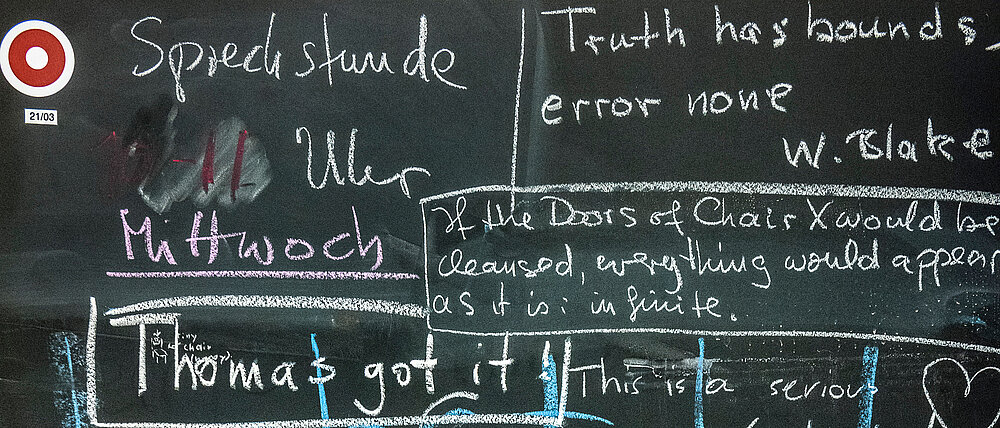 21/03
Sprechstunde
-11 Uhr
Mittwoch
Truth has bounds,
error none
W. Blake
If the Doors of Chair X would be
cleansed, everything would appear
as it is: infinite.
Thomas got it!
tiny
chair
This is a serious